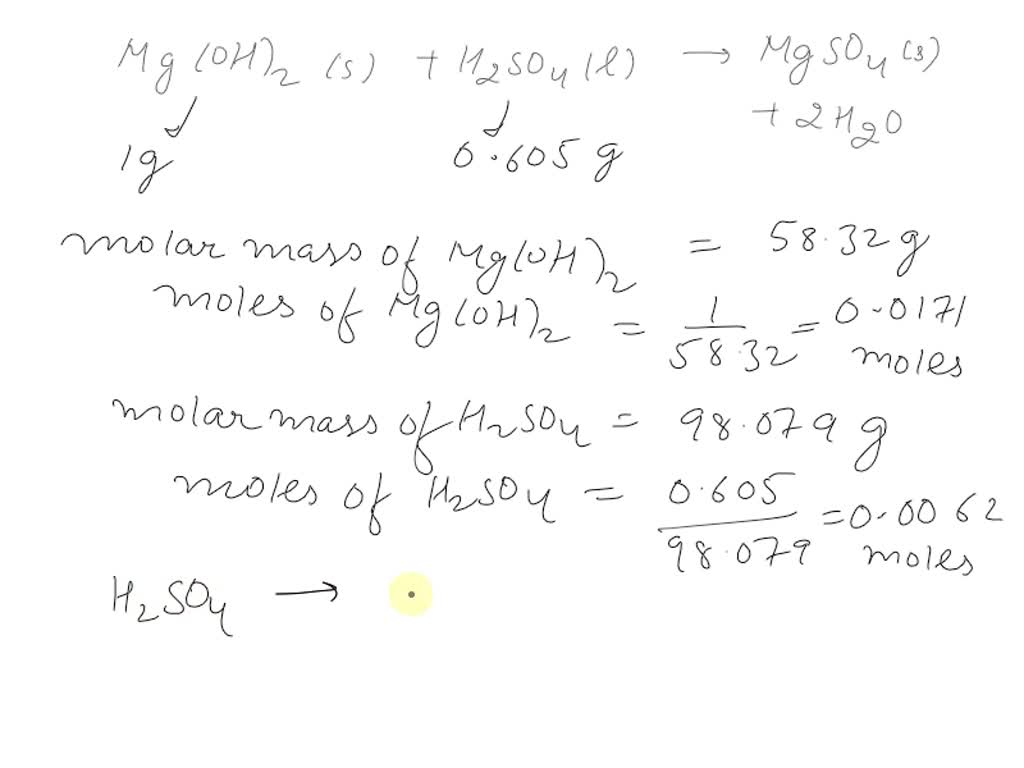 Mg(OH)2 (s) + H2SO4 (l) → MgSO4 (s)
+ 2H2O
1g 0.605 g
molar mass of Mg(OH)2 = 58.32g
moles of Mg(OH)2 = 1/58.32 = 0.0171
moles
molar mass of H2SO4 = 98.079 g
moles of H2SO4 = 0.605/98.079 = 0.0062
moles
H2SO4 →